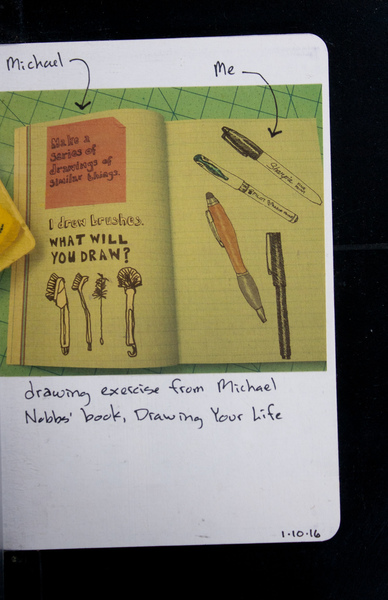 Michael
Me
Make a
series of
drawings of
similar things.
I draw brushes.
WHAT WILL
YOU DRAW?
Sharpie
drawing exercise from Michael
Nobbs' book, Drawing Your Life
1·10·16